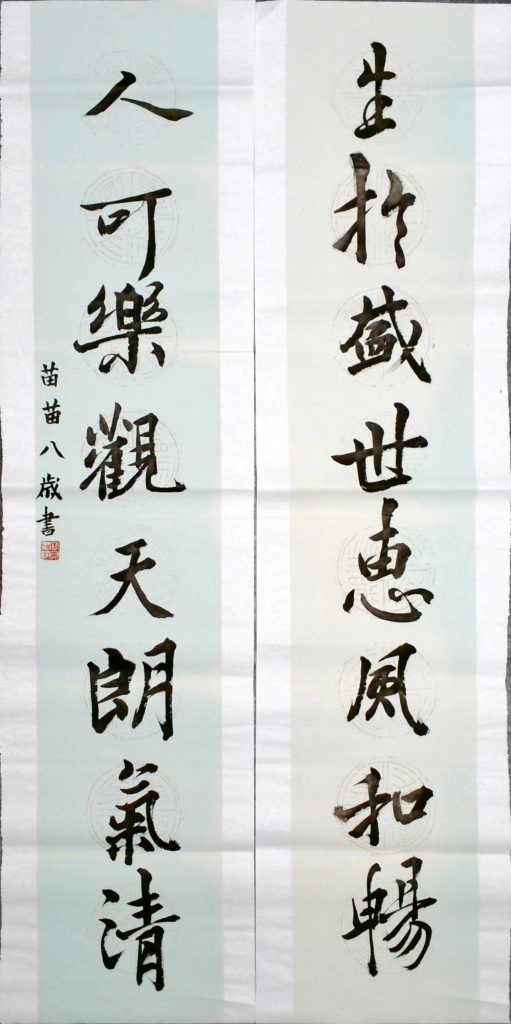 生於盛世惠風和暢
人可樂觀天朗氣清
苗苗八歲書